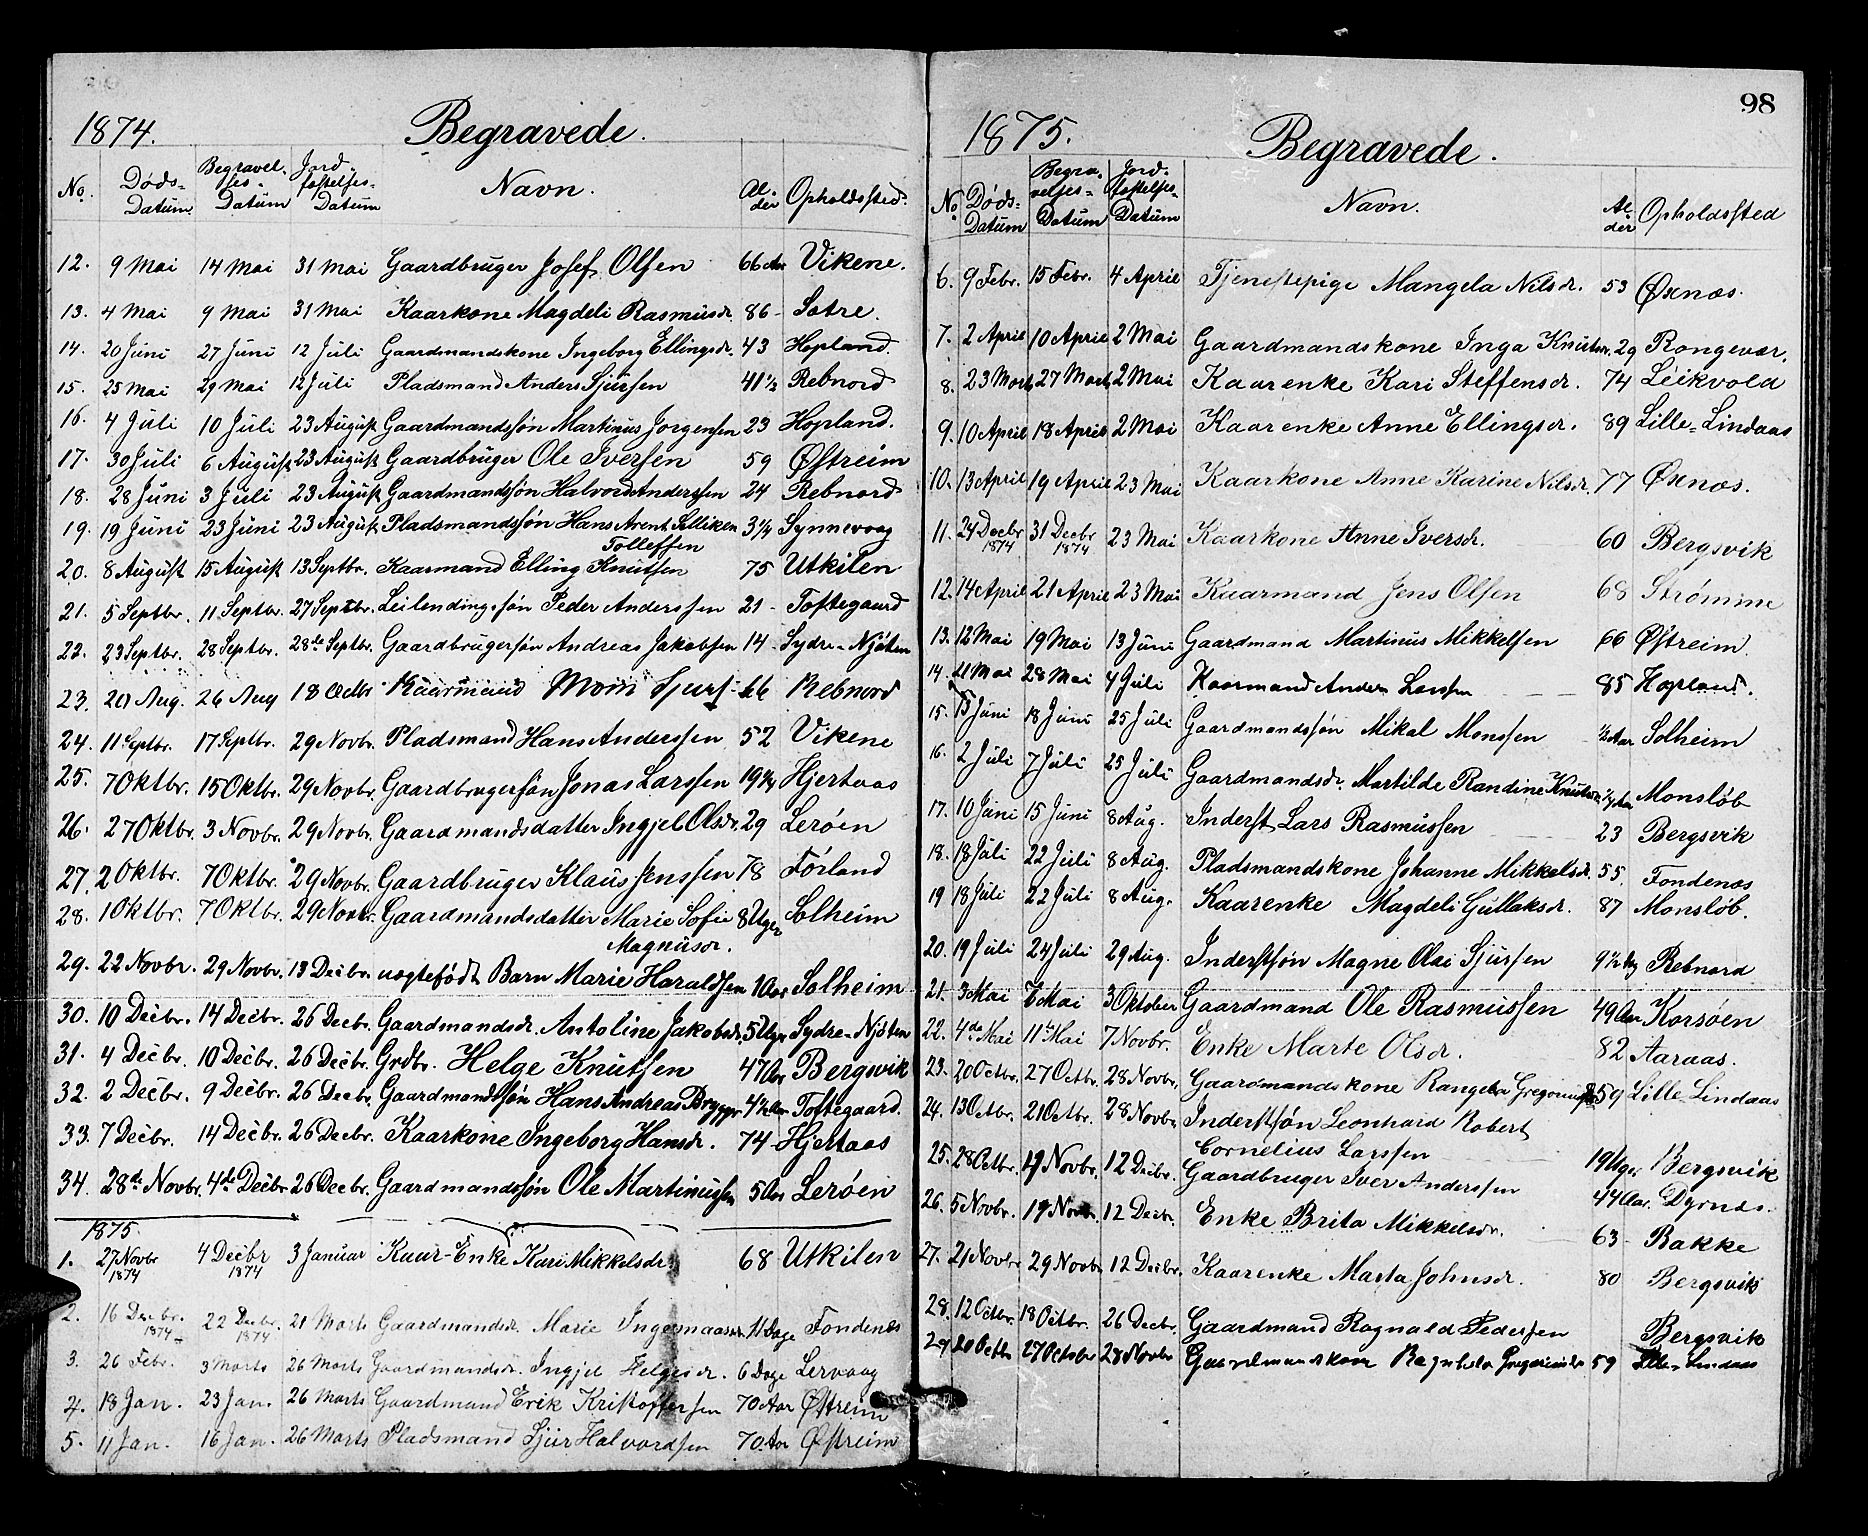 1874. Begravede.
No. Døds-Datum. Begravelses-Datum Jordfæstelses-Datum Navn. Alder Opholdssted.
12. 9 Mai 14 Mai 31 Mai Gaardbruger Josef Olsen 66 Aar Vikene.
13. 4 Mai 9 Mai 31 Mai Kaarkone Magdeli Rasmusdr. 86 - Sætre.
14. 20 Juni 27 Juni 12 Juli Gaardmandskone Ingeborg Ellingsdr. 43 Hopland.
15. 25 Mai 29 Mai 12 Juli Pladsmand Anders Sjursen 41 1/2 Rebnord
16. 4 Juli 10 Juli 23 August Gaardmandssøn Martinus Jørgensen 23 Hopland.
17. 30 Juli 6 August 23 August Gaardbruger Ole Iversen 59 Østreim
18. 28 Juni 3 Juli 23 August Gaardmandssøn Halvord Anderssen 24 Rebnord
19. 19 Juni 23 Juni 23 August Pladsmandssøn Hans Arent Selliken 3 1/4 Synnevaag
Tolleffsen
20. 8 August 15 August 13 Septbr. Kaarmand Elling Knutsen 75 Utkilen
21. 5 Septbr. 11 Septbr. 27 Septbr. Leilendingssøn Peder Anderssen 21 - Toftegaard
22. 23 Septbr. 28 Septbr. 28de Septbr. Gaardbrugersøn Andreas Jakobsen 14 - Sydre-Njøten
23. 20 Aug. 26 Aug 18 Octbr Kaarmand Mons Sjurs 66 Rebnord
24. 11 Septbr. 17 Septbr. 29 Novbr. Pladsmand Hans Anderssen 52 Vikene
25. 7 Oktbr. 15 Oktbr. 29 Novbr. Gaardbrugersøn Jonas Larssen 19 1/4 Hjertaas
26. 27 Oktbr. 3 Novbr. 29 Novbr. Gaardmandsdatter Ingjel Olsdr. 29 Lerøen
27. 2 Oktbr. 7 Oktbr. 29 Novbr. Gaardbruger Klaus Jenssen 78 Førland
28. 1 Oktbr. 7 Oktbr. 29 Novbr. Gaardmandsdatter Marie Sofie 8 Uger Solheim
Magnusdr.
29. 22 Novbr. 29 Novbr. 13 Decbr. uægtefødt Barn Marie Haraldsen 1 Aar Solheim
30. 10 Decbr. 14 Decbr. 26 Decbr. Gaardmandsdr. Antoline Jakobsdr. 5 Uger Sydre-Njøten
31. 4 Decbr. 10 Decbr. 26 Decbr. Grdbr. Helge Knutsen 47 Aar Bergsvik
32. 2 Decbr. 9 Decbr. 26 Decbr. Gaardmandssøn Hans Andreas 4 1/2 Aar Toftegaard.
33. 7 Decbr. 14 Decbr. 26 Decbr. Kaarkone Ingeborg Hansdr. 74 Hjertaas
34. 28de Novbr. 4de Decbr 26 Decbr. Gaardmandssøn Ole Martinussen 5 Aar Lerøen
1875.
1. 27 Novbr 1874 4 Decbr 1874 3 Januar Kaar-Enke Kari Mikkelsdr. 68 Utkilen
2. 16 Decbr. 1874 22 Decbr. 1874 21 Marts Gaardmandsdr. Marie 11 Dage Fondenes
3. 26 Febr. 3 Marts 26 Marts Gaardmandsdr. Ingjel Helgesdr. 6 Dage Lervaag
4. 18 Jan. 23 Jan. 26 Marts Gaardmand Erik Kristoffersen 70 Aar Østreim
5. 11 Jan. 16 Jan. 26 Marts Pladsmand Sjur Halvordsen 70 Aar Østreim
98
1875. Begravede.
No. Døds-Datum Begravelses-Datum Jordfæstelses-Datum Navn. Alder Opholdssted
6. 9 Febr. 15 Febr. 4 April Tjenestepige Mangela Nilsdr. 53 Øxnæs.
7. 2 April 10 April 2 Mai Gaardmandskone Inga Knutsdr. 29 Rongevær.
8. 23 Marts 27 Marts 2 Mai Kaarenke Kari Steffensdr. 74 Leikvold
9. 10 April 18 April 2 Mai Kaarenke Anne Ellingsdr. 89 Lille-Lindaas
10. 13 April 19 April 23 Mai Kaarkone Anne Karine Nilsdr. 77 Øxnæs.
11. 24 Decbr 1874 31 Decbr 1874 23 Mai Kaarkone Anne Iversdr. 60 Bergsvik
12. 14 April 21 April 23 Mai Kaarmand Jens Olsen 68 Strømme
13. 12 Mai 19 Mai 13 Juni Gaardmand Martinus Mikkelsen 66 Østreim.
14. 21 Mai 28 Mai 4 Juli Kaarmand Anders Larsen 85 Hopland.
15. 13 Juni 18 Juni 25 Juli Gaardmandssøn Mikal Monsen 1/2 Aar Solheim
16. 2 Juli 7 Juli 25 Juli Gaardmandsdr. Martilde Randine Knutsdr. 1/4 Aar Monsløb
17. 10 Juni 15 Juni 8 Aug. Inderst Lars Rasmussen 23 Bergsvik
18. 18 Juli 22 Juli 8 Aug. Pladsmandskone Johanne Mikkelsdr. 55. Fondenæs
19 18 Juli 22 Juli 8 Aug. Kaarenke Magdeli Gullaksdr. 87 Monsløb.
20. 19 Juli 24 Juli 29 Aug. Inderstsøn Magne Olai Sjursen 9 1/2 Rebnord
21. 3 Mai Mai 3 Oktober Gaardmand Ole Rasmussen 49 Aar Korsøen
22. 4de Mai 11te Mai 7 Novbr. Enke Marte Olsdr. 82 Aaraas.
23. 20 Octbr. 27 Octbr. 28 Novbr. Gaardmandskone Rangela 59 Lille Lindaas
24. 13 Octbr. 21 Octbr. 28 Novbr. Inderstsøn Leonhard Robert
Cornelius Larssen 19 Uger Bergsvik
25. 28 Octbr. 4 Novbr. 12 Decbr. Gaardbruger Iver Anderssen 44 Aar. Dyrnes.
26. 5 Novbr. Novbr. 12 Decbr. Enke Brita Mikkelsdr. 63 - Bakke
27. 21 Novbr 29 Novbr 12 Decbr. Kaarenke Marta Johnsdr. 80 Bergsvik
28. 12 Octbr. 18 Octbr. 26 Decbr. Gaardmand Ragnald Pedersen Bergsvik
20 Octbr 27 October 28 Novbr Gaardmandskone 59 Lille-Lindaas